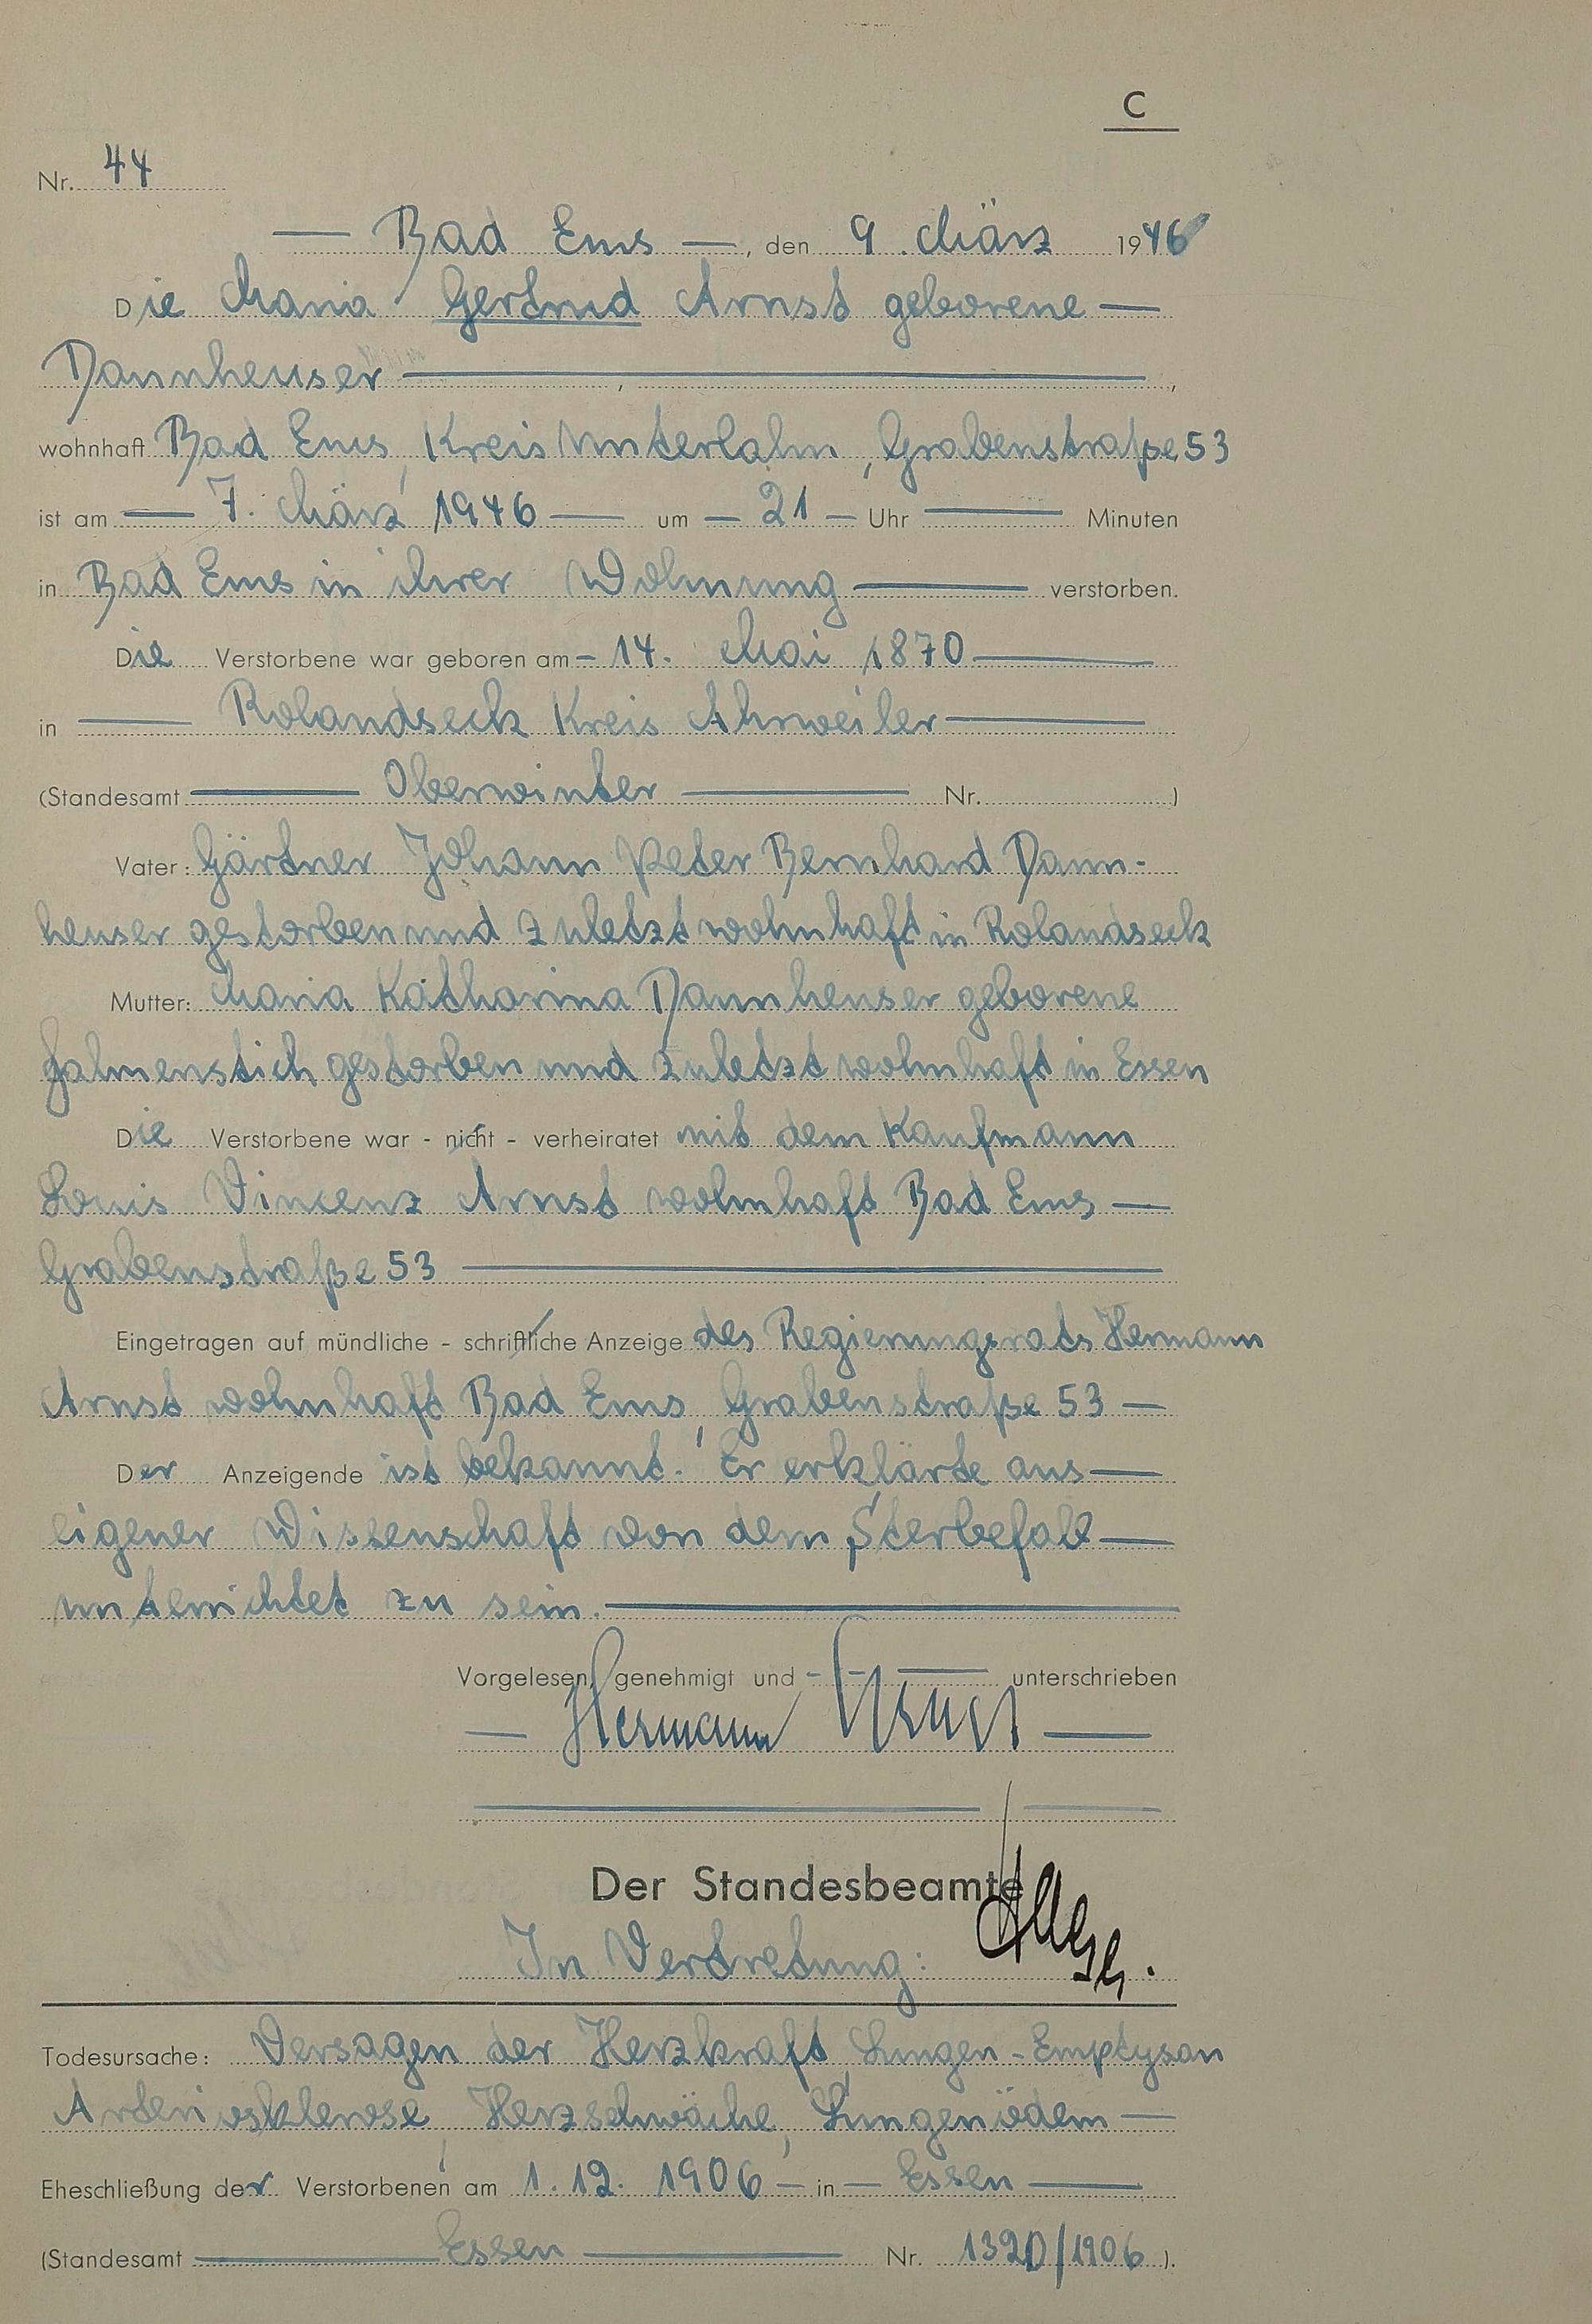 C
Nr. 44
— Bad Ems —, den 9. März 1946
Die Maria Gertrud Arnst geborene —
Dannheuser —
wohnhaft Bad Ems, Kreis Unterlahn, Grabenstraße 53
ist am — 7. März 1946 — um — 21 — Uhr — Minuten
in Bad Ems in ihrer Wohnung — verstorben.
Die Verstorbene war geboren am – 14. Mai 1870 —
in — Rolandseck Kreis Ahrweiler —
(Standesamt — Oberwinter — Nr. )
Vater: Gärtner Johann Peter Bernhard Dann-
heuser gestorben und zuletzt wohnhaft in Rolandseck
Mutter: Maria Katharina Dannheuser geborene
Fahnenstich gestorben und zuletzt wohnhaft in Essen
Die Verstorbene war - nicht - verheiratet mit dem Kaufmann
Louis Vincenz Arnst wohnhaft Bad Ems —
Grabenstraße 53 —
Eingetragen auf mündliche - schriftliche Anzeige des Regierungsrats Hermann
Arnst wohnhaft Bad Ems, Grabenstraße 53 —
Der Anzeigende ist bekannt. Er erklärte aus —
eigener Wissenschaft von dem Sterbefall —
unterrichtet zu sein. —
Vorgelesen, genehmigt und — unterschrieben
— Hermann Arnst —
Der Standesbeamte
In Vertretung:
Todesursache: Versagen der Herzkraft, Lungen-Emptysan
Arteriosklerose, Herzschwäche, Lungenödem —
Eheschließung der Verstorbenen am 1.12. 1906 — in — Essen —
(Standesamt — Essen — Nr. 1320/1906 ).